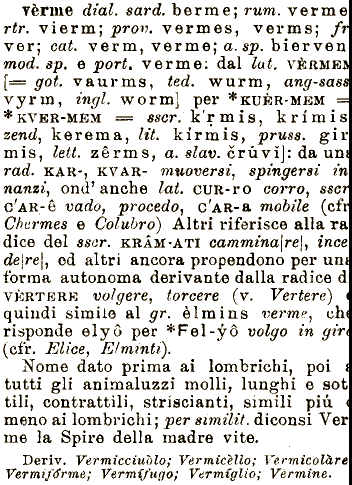 vèrme dial. sard. berme; rum. verme
rtr. vierm; prov. vermes, verms; fr
ver; cat. verm, verme; a. sp. bierven
mod. sp. e port. verme: dal lat. VÈRMEM
[= got. vaurms, ted. wurm, ang-sass
vyrm, ingl. worm] per *KUÈR-MEM =
*KVER-MEM = sscr. k'ṛmis, krímis
zend, kerema, lit. kirmis, pruss. gir
mis, lett. zêrms, a. slav. črŭvĭ]: da una
rad. KAR-, KVAR- muoversi, spingersi in
nanzi, ond' anche lat. CUR-ro corro, sscr
C'AR-ê vado, procedo, C'AR-a mobile (cfr
Chermes e Colubro) Altri riferisce alla ra
dice del sscr. KRÂM-ATI cammina[re], ince
de[re], ed altri ancora propendono per una
forma autonoma derivante dalla radice di
VÈRTERE volgere, torcere (v. Vertere) e
quindi simile al gr. èlmins verme, che
risponde elyô per *Fel-ŷô volgo in giro
(cfr. Elice, Elminti).
Nome dato prima ai lombrichi, poi a
tutti gli animaluzzi molli, lunghi e sot
tili, contrattili, striscianti, simili più o
meno ai lombrichi; per similit. diconsi Ver
me la Spire della madre vite.
Deriv. Vermicciuòlo; Vermicèllo; Vermicolàre
Vermifórme; Vermífugo; Vermíglio; Vèrmine.